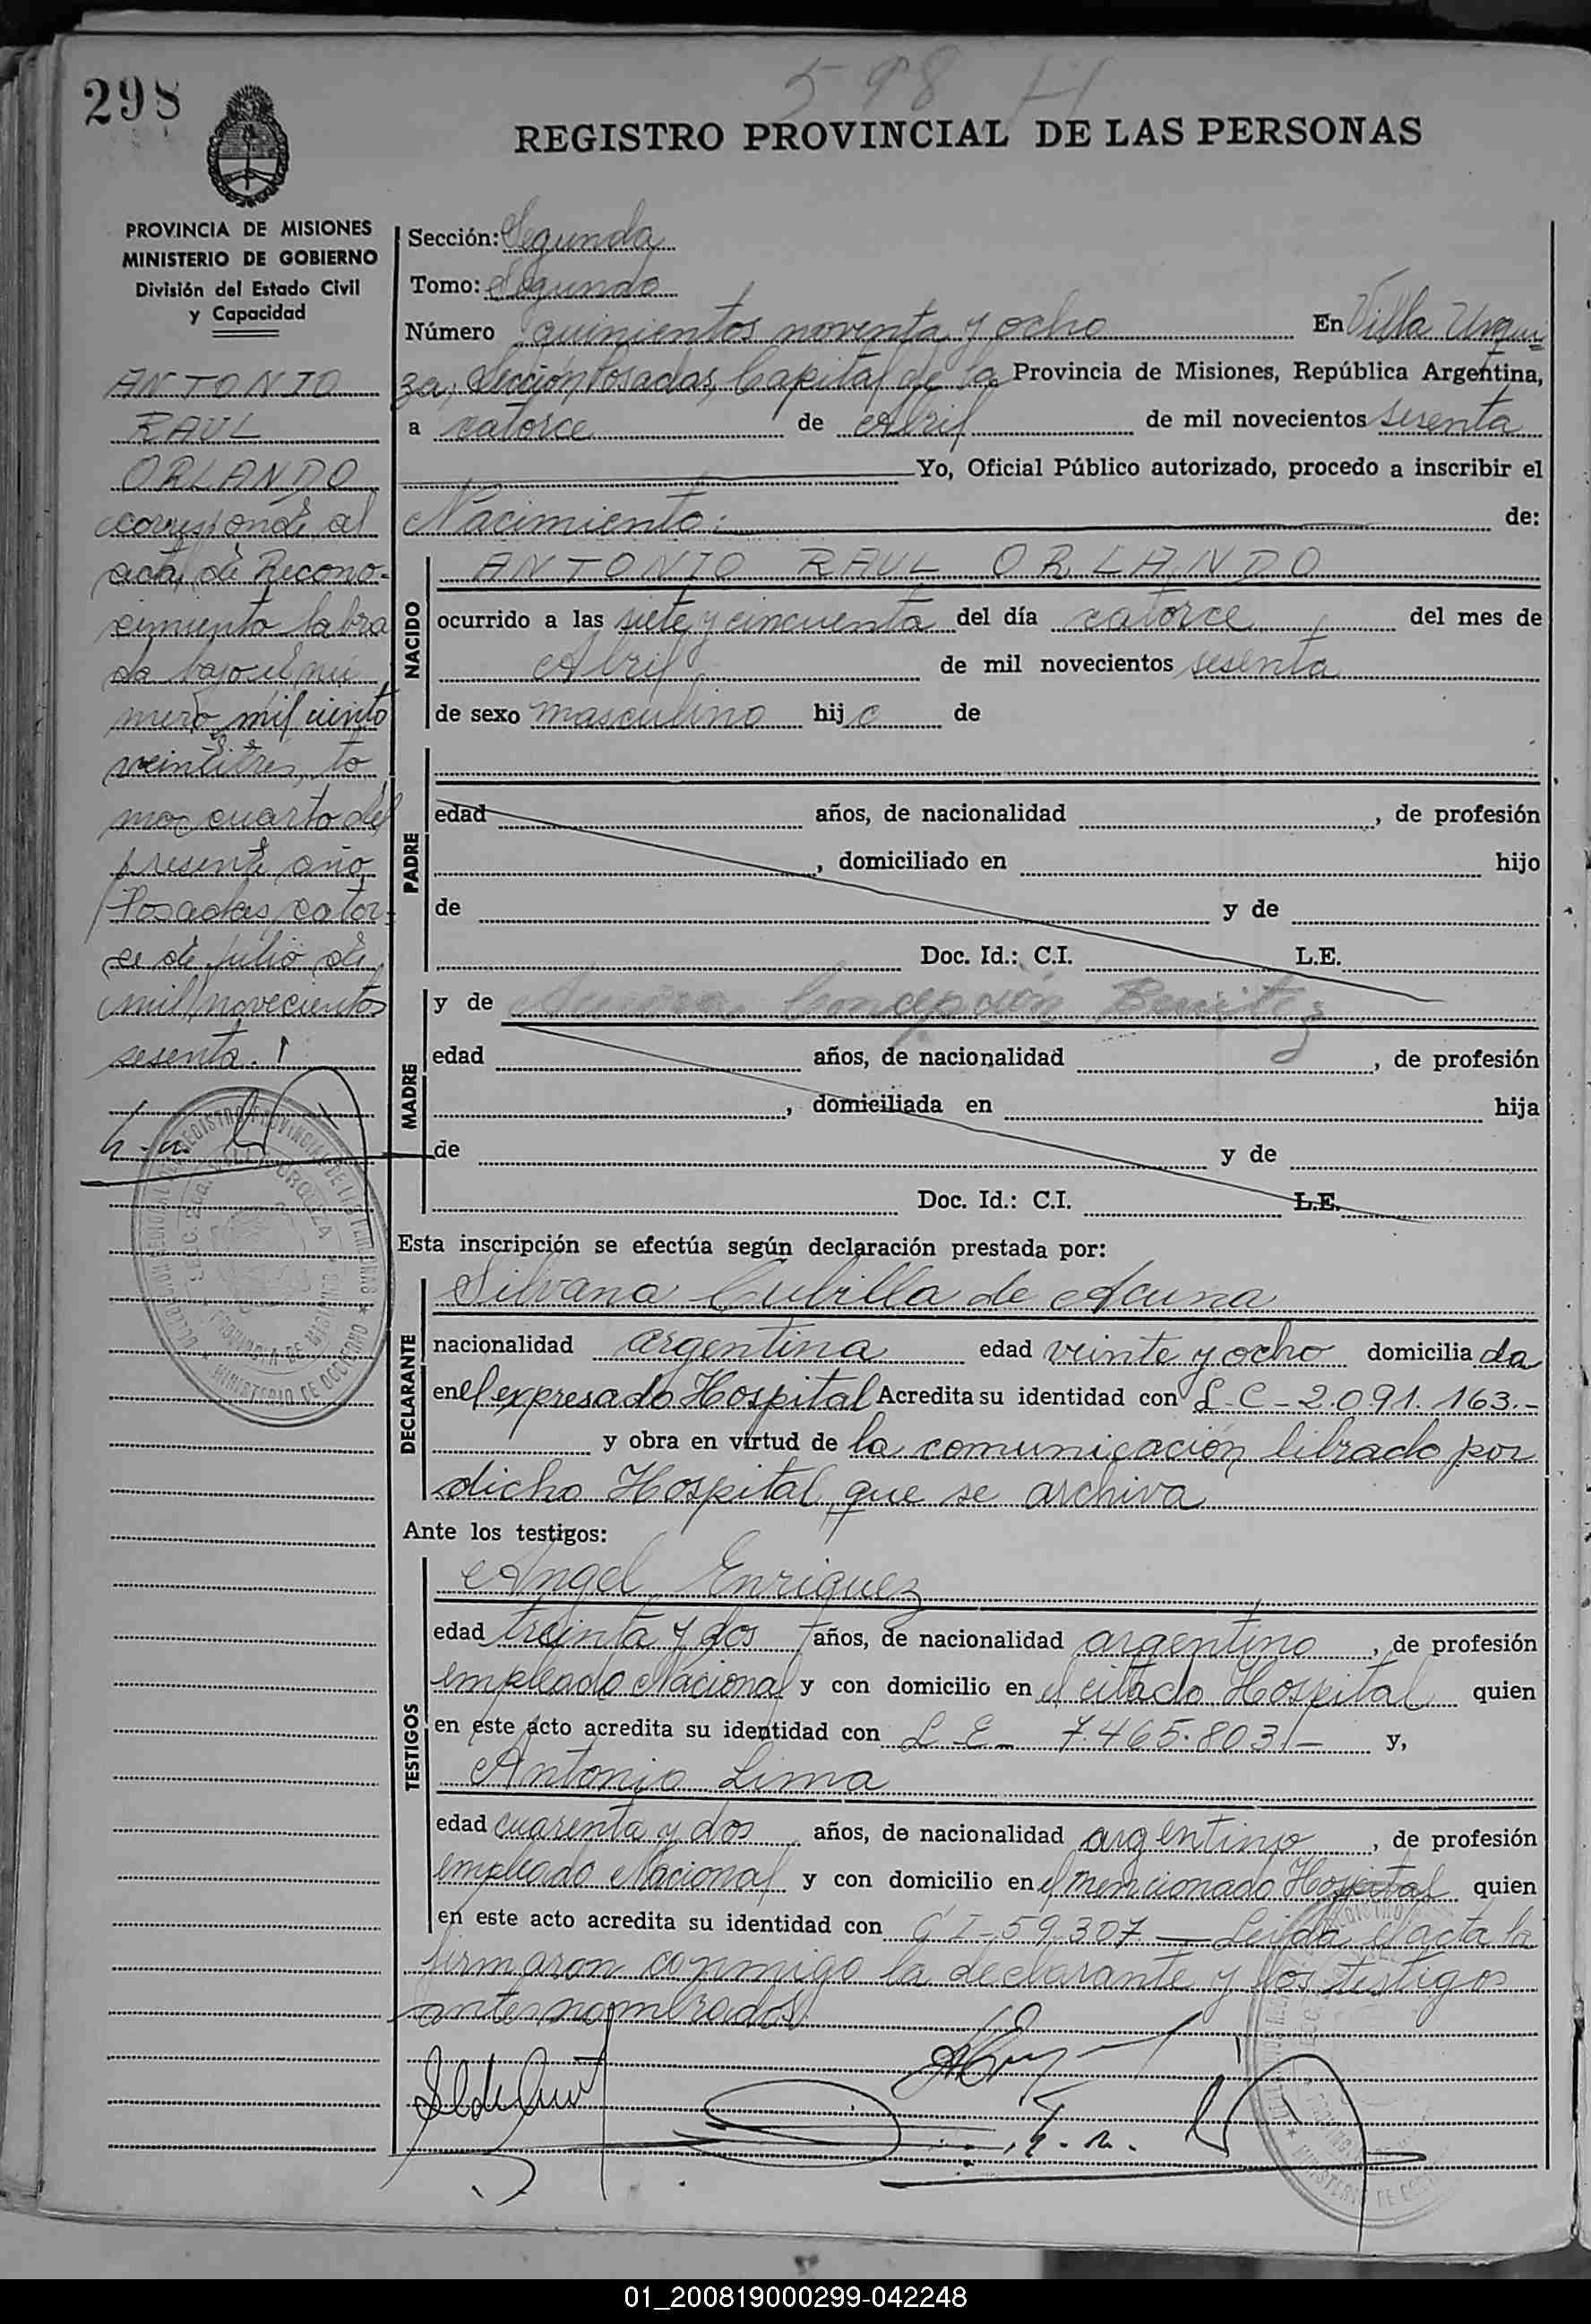 298
598 H
REGISTRO PROVINCIAL DE LAS PERSONAS
PROVINCIA DE MISIONES
MINISTERIO DE GOBIERNO
División del Estado Civil
y Capacidad
ANTONIO
RAUL
ORLANDO
corresponde al
acta de Recono-
cimiento labra
da bajo el nú
mero mil ciento
veintitres, to
mo cuarto del
presente año
Posadas, cator-
ce de julio de
mil novecientos
sesenta.
Sección: Segunda
Tomo: Segundo
Número quinientos noventa y ocho En Villa Urqui
za, Sección Posadas, Capital de la Provincia de Misiones, República Argentina,
a catorce de Abril de mil novecientos sesenta
Yo, Oficial Público autorizado, procedo a inscribir el
Nacimiento: de:
NACIDO
ANTONIO RAUL ORLANDO
ocurrido a las siete y cincuenta del día catorce del mes de
Abril de mil novecientos sesenta
de sexo masculino hijo de
PADRE
edad años, de nacionalidad , de profesión
, domiciliado en hijo
de y de
Doc. Id.: C.I. L.E.
MADRE
y de Aurora Concepción Benitez
edad años, de nacionalidad , de profesión
, domiciliada en hija
de y de
Doc. Id.: C.I. L.E.
Esta inscripción se efectúa según declaración prestada por:
DECLARANTE
Silvana Cubilla de Acuna
nacionalidad argentina edad veinte y ocho domiciliada
en el expresado Hospital Acredita su identidad con L-C-2.091.163.-
y obra en virtud de la comunicación librado por
dicho Hospital, que se archiva
Ante los testigos:
TESTIGOS
Angel Enriquez
edad treinta y dos años, de nacionalidad argentino, de profesión
empleado Nacional y con domicilio en el citado Hospital quien
en este acto acredita su identidad con L-E- 7.465.803.- y,
Antonio Lima
edad cuarenta y dos años, de nacionalidad argentino, de profesión
empleado Nacional y con domicilio en el mencionado Hospital quien
en este acto acredita su identidad con C I-59.307 — Leida el acta la
firmaron conmigo la declarante y los testigos
antes nombrados
01_200819000299-042248